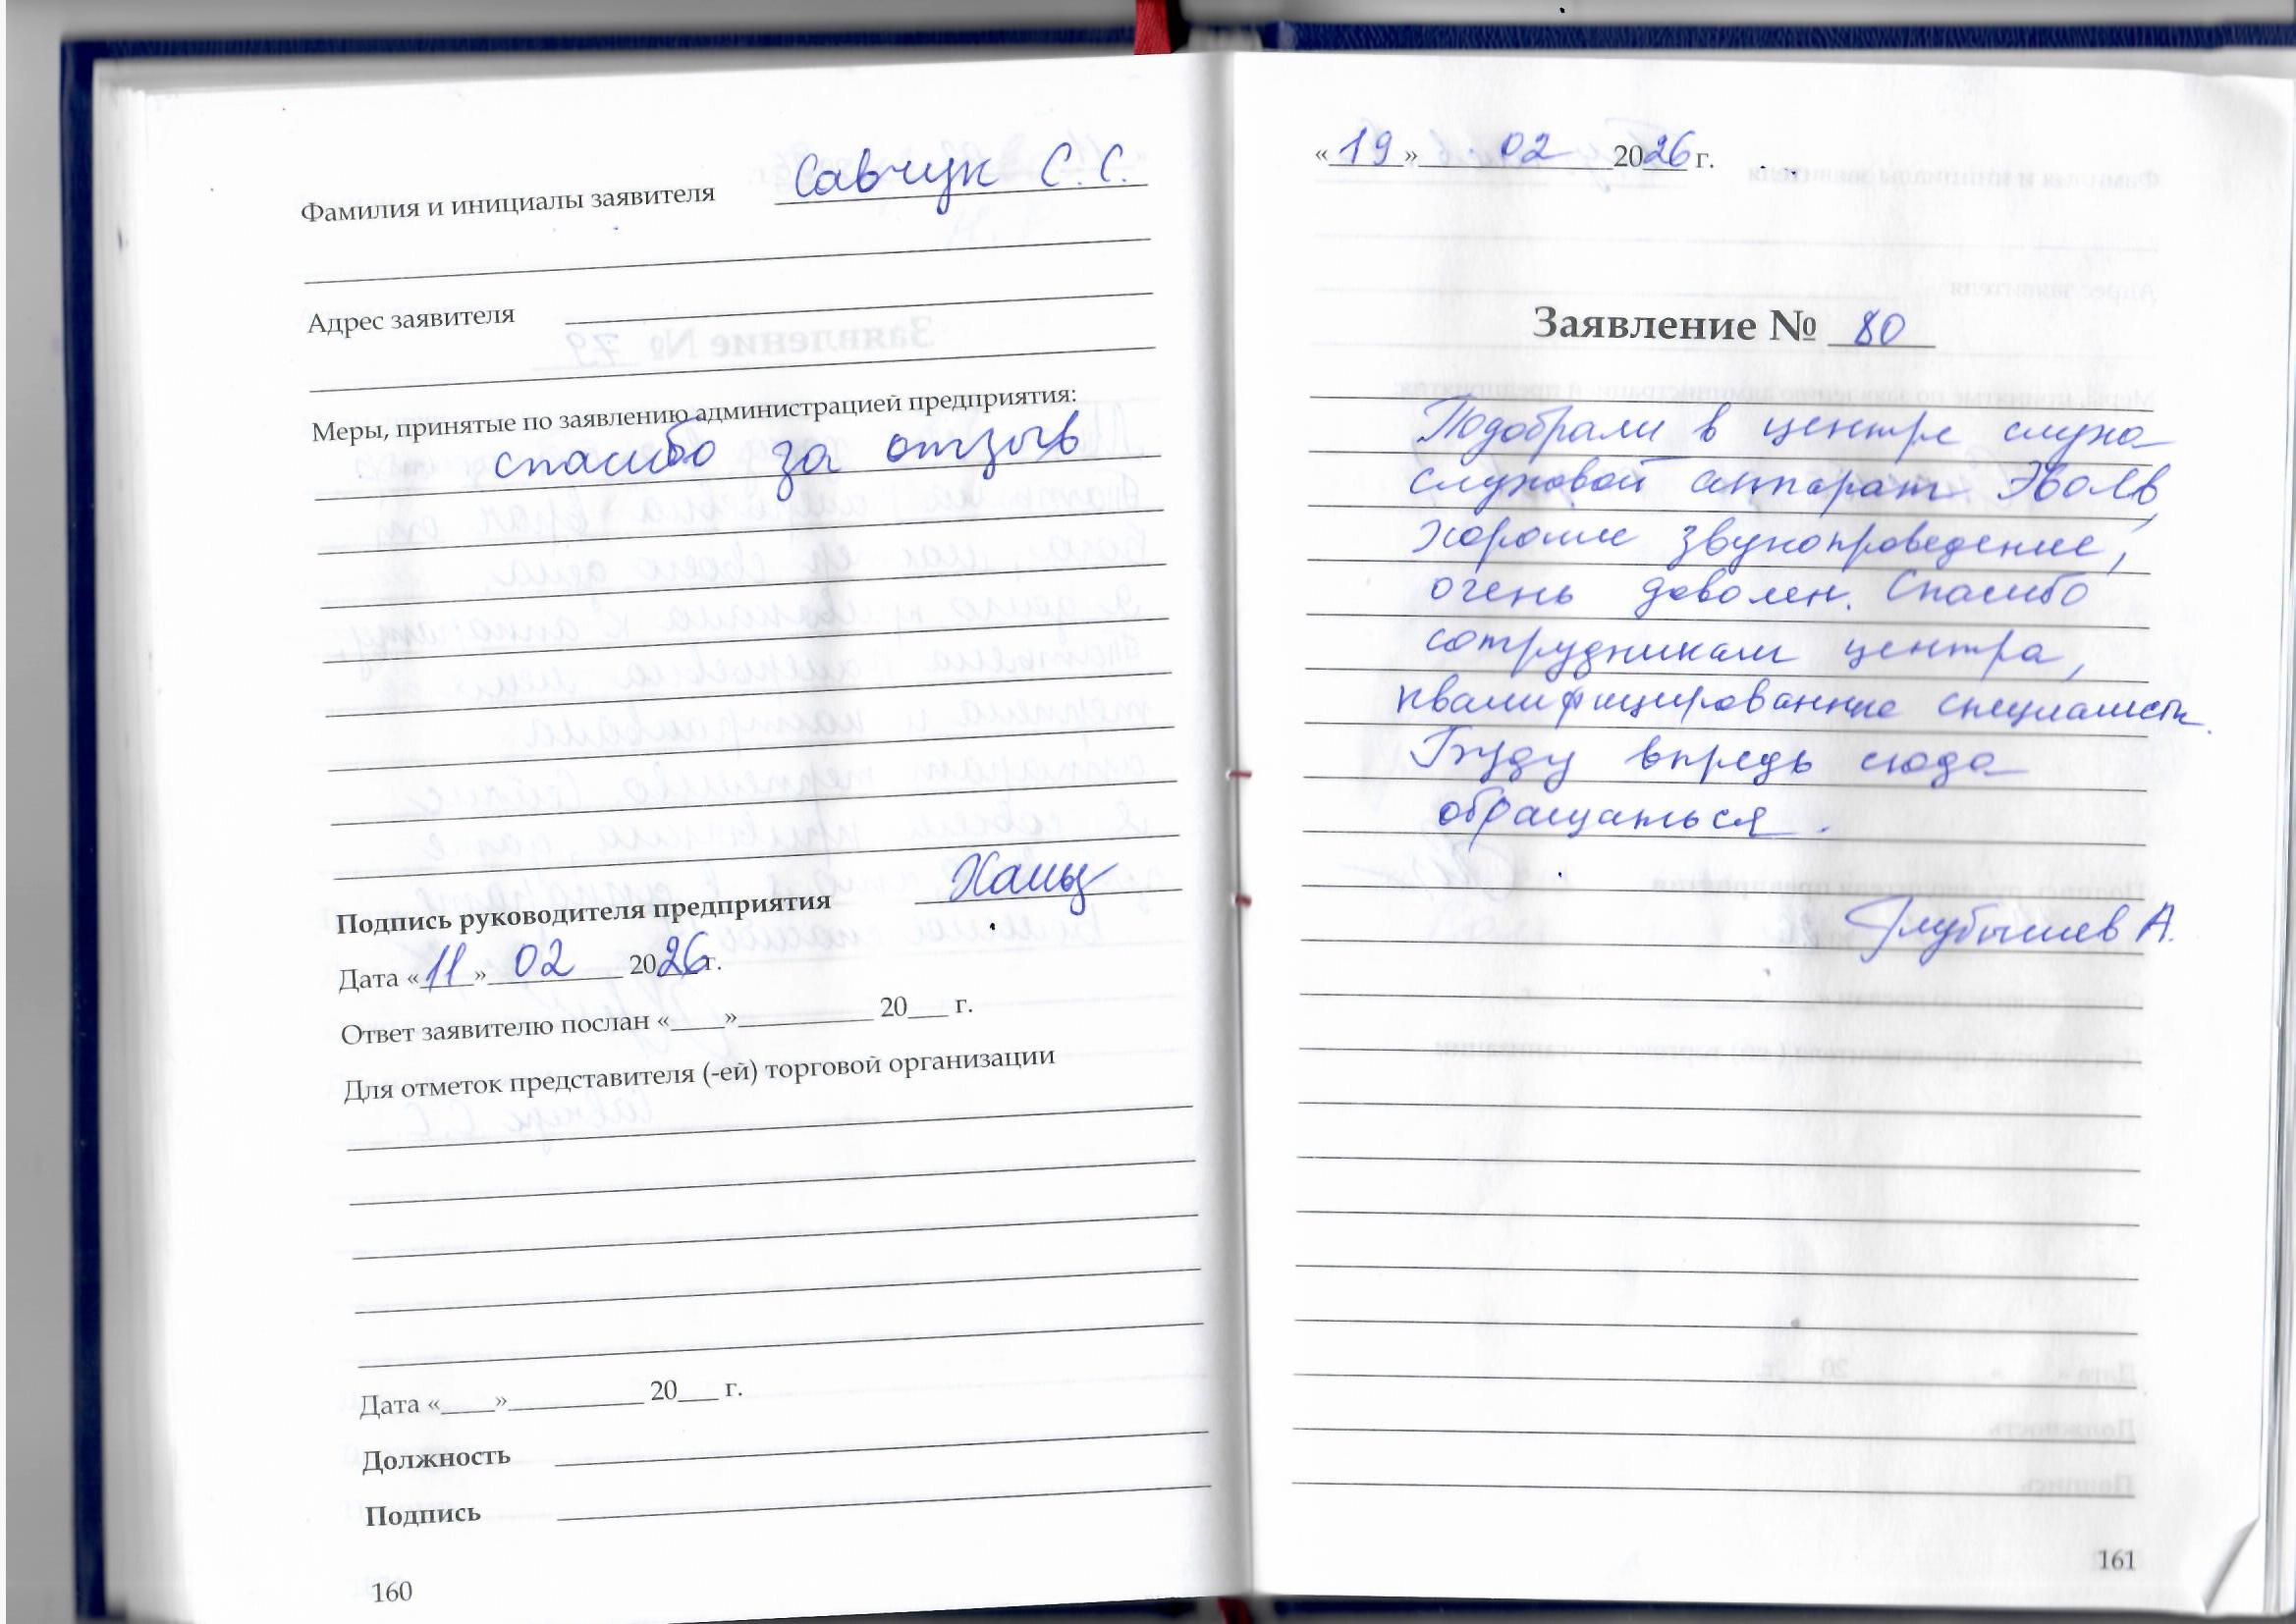 Фамилия и инициалы заявителя Савчук С.С.
Адрес заявителя
Меры, принятые по заявлению администрацией предприятия:
спасибо за отзыв
Подпись руководителя предприятия
Дата «11» 02 2026 г.
Ответ заявителю послан «____»__________ 20___ г.
Для отметок представителя (-ей) торговой организации
Дата «____»__________ 20___ г.
Должность
Подпись
160
«19» 02 2026 г.
Заявление № 80
Подобрали в центре слуха
слуховой аппарат Эволв,
хорошие звукопроведение,
очень доволен. Спасибо
сотрудникам центра,
квалифицированные специалисты.
Буду впредь сюда
обращаться.
Глубышев А.
161